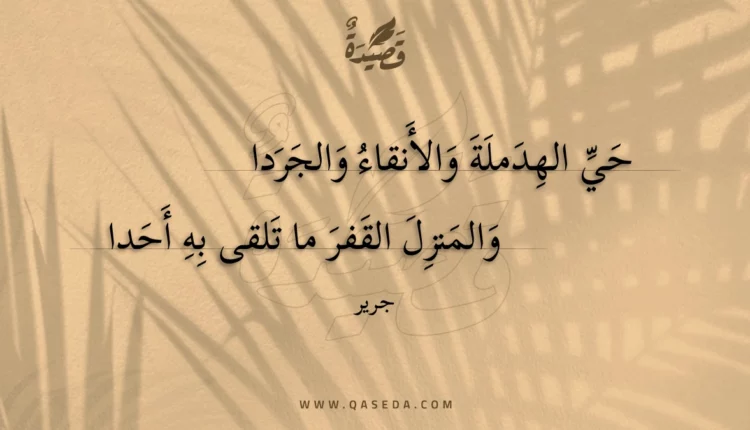 قَصِيْدَةٌ
حَيِّ الهِدَملَةَ وَالأَنقاءُ وَالجَرَدا
وَالمَنزِلَ القَفرَ ما تَلقى بِهِ أَحَدا
جرير
WWW.QASEDA.COM